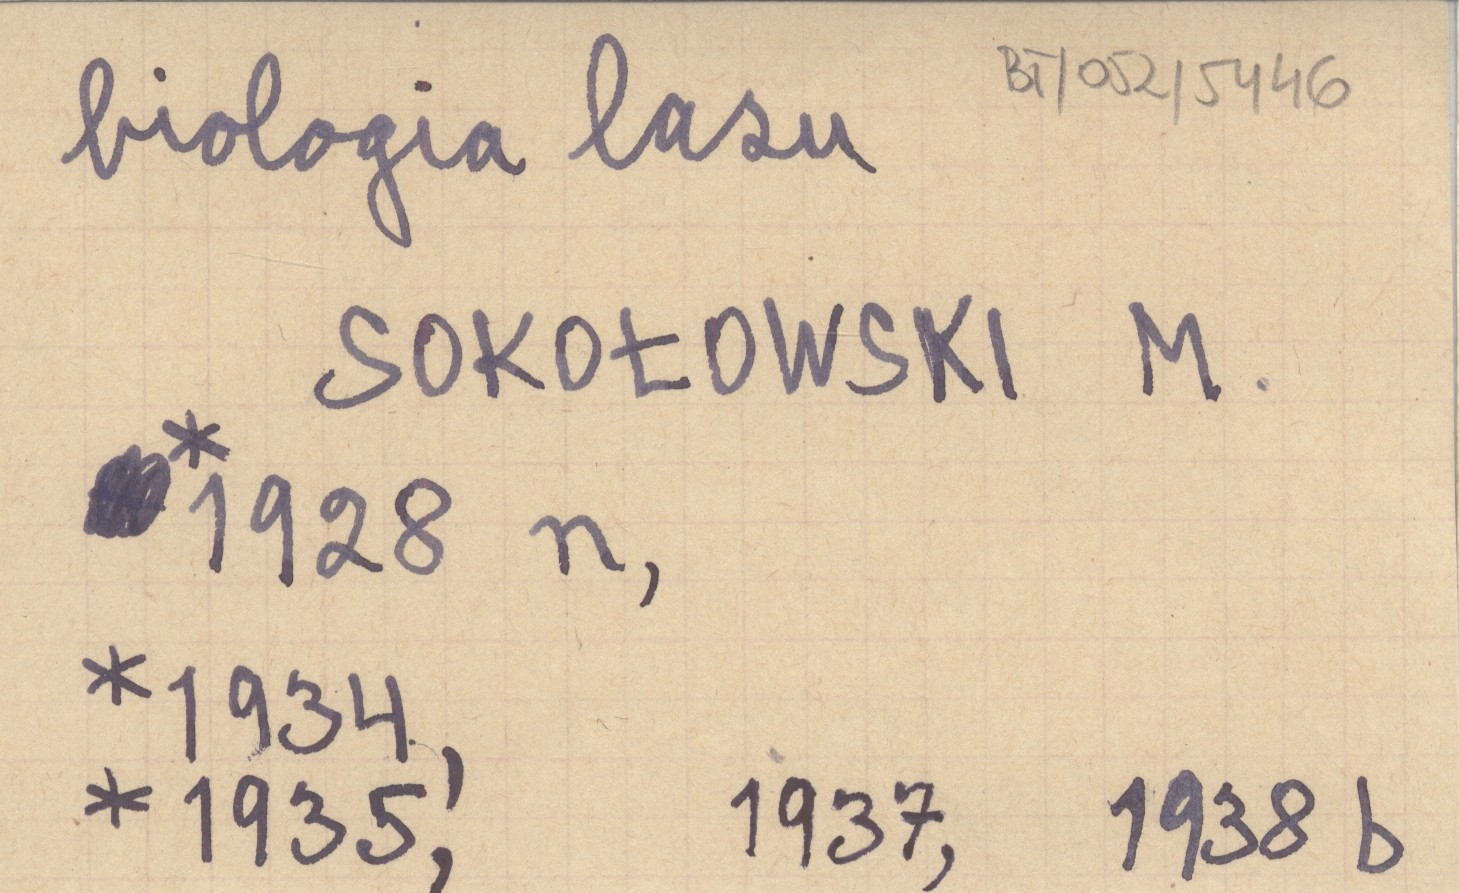 biologia lasu BI/052/5446
SOKOŁOWSKI M.
*1928 n,
*1934,
*1935, 1937, 1938 b